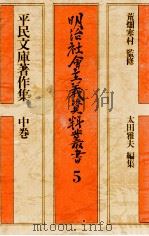 荒畑寒村 監修
太田雅夫 編集
明治社會主義資料叢書
5
平民文庫著作集 中巻